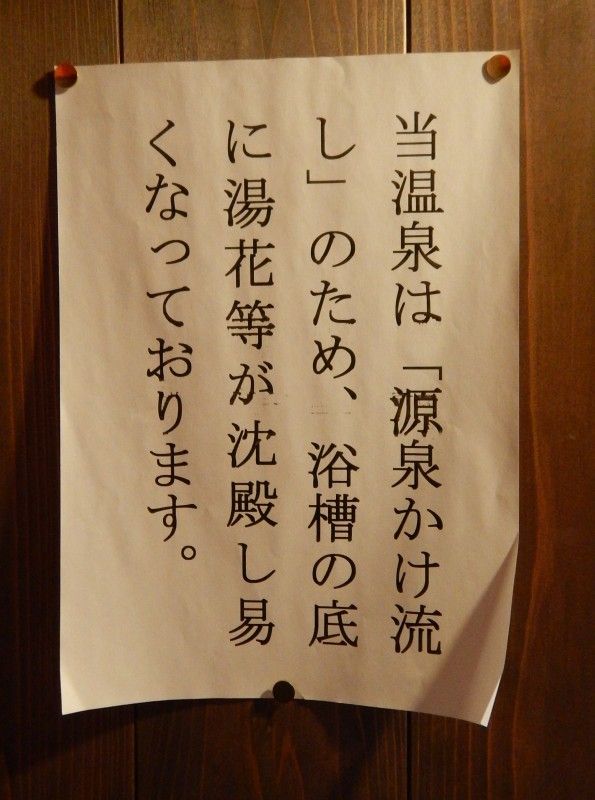 当温泉は「源泉かけ流
し」のため、浴槽の底
に湯花等が沈殿し易
くなっております。